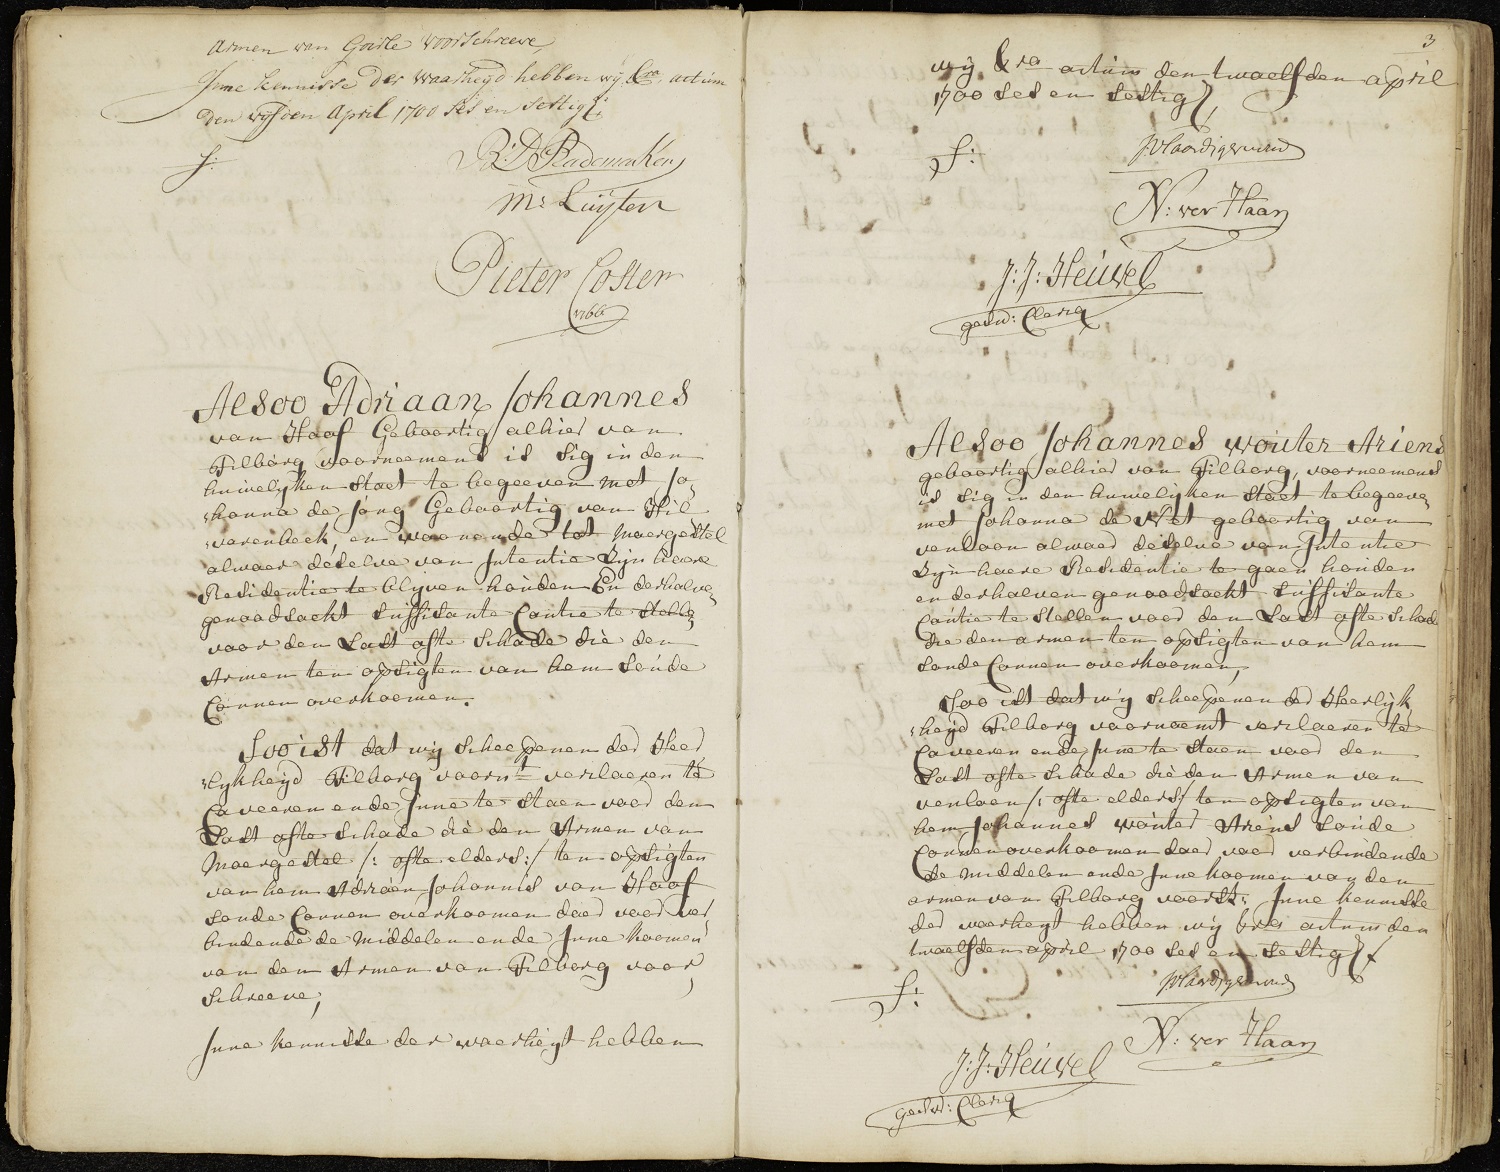 Armen van Goirle voorschreeve,
Inne kennisse der waarheyd hebben wy &ra. actum
den vyfden April 1700 ses en sestig /.
f:
R: D Rademaker
M: Luyten
Pieter Coster
1766
Alsoo Adriaan Johannes
van Haaf Geboortig alhier van
Tilborg voorneemens is sig in den
huwelyken staet te begeeven met Jo
hanna de Jong Geboortig van Hil
varenbeek, en woonende tot Moergestel
alwaer deselve van Intentie Zyn haere
Residentie te blyven houden En derhalve
genoodsackt suffisante Cautie te stelle
voor den Last ofte schade die den
Armen ten opsigten van hem soude
Connen overkoomen.
Soo ist dat wy scheepenen der Heer
lykheyd Tilborg voornt. verclaeren te
Caveeren ende Inne te staen voor den
Last ofte schade die den Armen van
Moergestel /: ofte elders:/ ten opsigten
van hem Adriaen Johannis van Haaf
soude Connen overkoomen daer voor ver
bindende de Middelen ende Inne koomen
van den Armen van Tilborg voor
schreeve,
Inne kennisse der waerheyt hebben
3
wy &ra actum den twaelfden april
1700 ses en sestig /,
f:
N: ver Haan
J: J: Heuvel
gesw: Clercq
Alsoo Johannes Wouter Ariens
geboortig alhier van Tilborg, voorneemens
is sig in den huwelyken staet te begeeve
met Johanna de Wit geboortig van
venloon alwaer deselve van Intentie
Zyn haere Residentie te gaen houden
en derhalven genoodsackt suffisante
Cautie te stellen voor den Last ofte schade
die den armen ten opsigten van hem
soude Connen overkoomen,
Soo ist dat wy scheepenen der Heerlyk
heyd Tilborg voornoemt verclaeren te
Caveeren ende Inne te staen voor den
Last ofte schade die den Armen van
venloon /: ofte elders / ten opsigten van
hem Johannes Wouter Ariens soude
Connen overkoomen daer voor verbindende
de middelen ende Inne koomen van den
armen van Tilborg voors:; Inne kennisse
der waerheyt hebben wy actum den
twaelfden april 1700 ses en sestig /
f:
N: ver Haan
J: J: Heuvel
gesw: Clercq